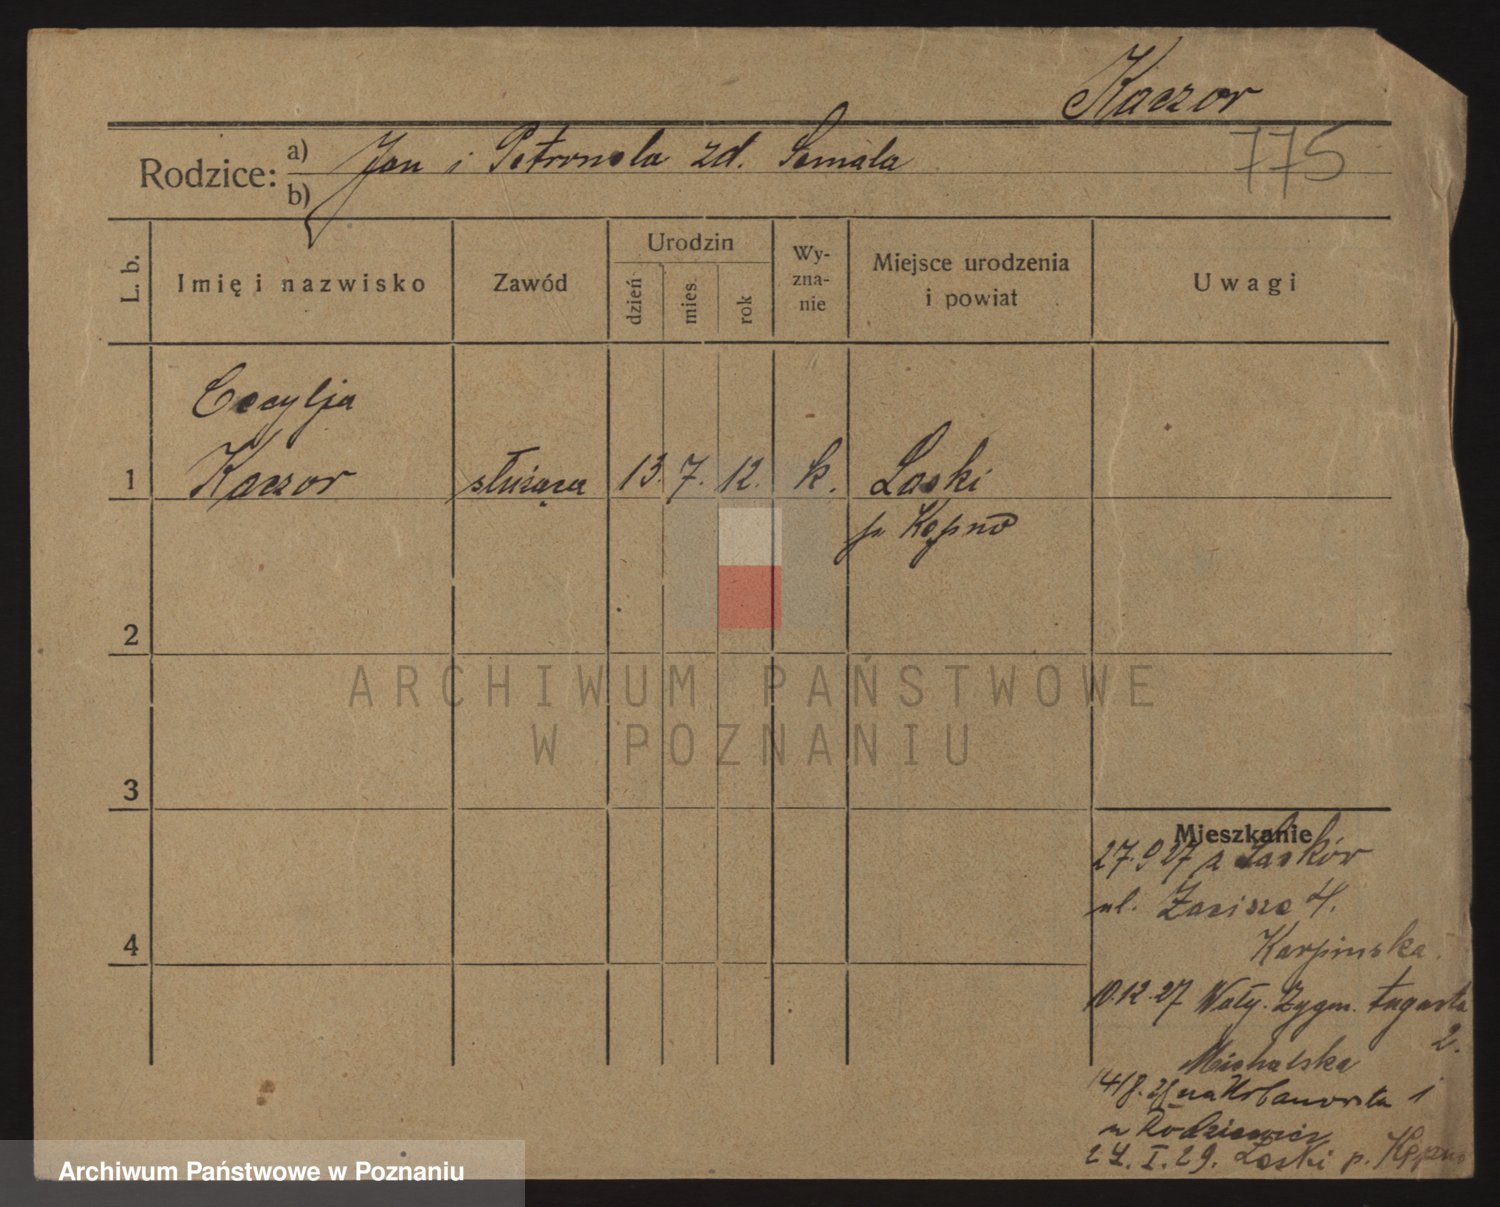 Kaczor
775
Rodzice: a) Jan i Petronela zd. Semała
b)
L. b.
Imię i nazwisko
Zawód
Urodzin
dzień
mies.
rok
Wy-
zna-
nie
Miejsce urodzenia
i powiat
Uwagi
Cecylja
1 Kaczor służąca 13. 7. 12. k. Laski
p Kępno
2
ARCHIWUM PAŃSTWOWE
W POZNANIU
3
Mieszkanie
27.9 27 z Lasków
ul. Zacisze 4.
4
Karpinska.
10.12.27 Wały. Zygm. Augusta
2.
Michalska
14/8. 28 na Urbanowska 1
u Rodziewicz
24. I. 29. Laski p. Kępno
Archiwum Państwowe w Poznaniu